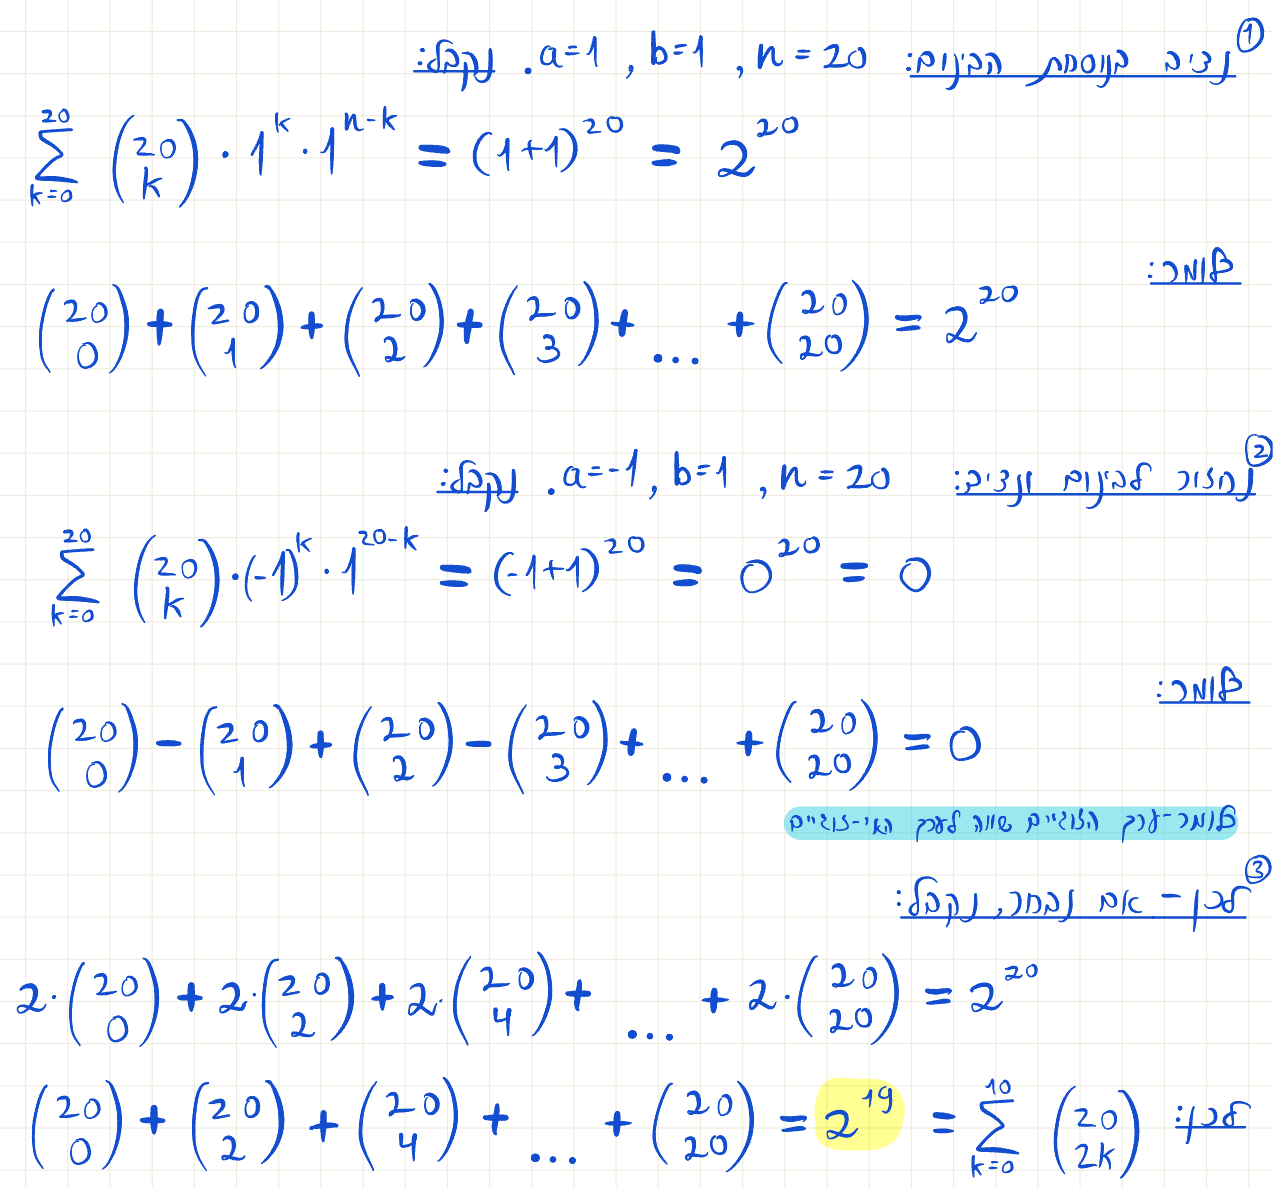 ① נציב בנוסחת הבינום: a=1 , b=1 , n = 20 . נקבל:
\sum_{k=0}^{20} \binom{20}{k} · 1^k · 1^{n-k} = (1+1)^{20} = 2^{20}
כלומר:
\binom{20}{0} + \binom{20}{1} + \binom{20}{2} + \binom{20}{3} + ... + \binom{20}{20} = 2^{20}
② נחזור לבינום ונציב: a=-1, b=1 , n = 20 . נקבל:
\sum_{k=0}^{20} \binom{20}{k} · (-1)^k · 1^{20-k} = (-1+1)^{20} = 0^{20} = 0
כלומר:
\binom{20}{0} - \binom{20}{1} + \binom{20}{2} - \binom{20}{3} + ... + \binom{20}{20} = 0
כלומר-ערך הזוגיים שווה לערך האי-זוגיים
③ לכן - אם נבחר, נקבל:
2·\binom{20}{0} + 2·\binom{20}{2} + 2·\binom{20}{4} + ... + 2·\binom{20}{20} = 2^{20}
לכן: \binom{20}{0} + \binom{20}{2} + \binom{20}{4} + ... + \binom{20}{20} = 2^{19} = \sum_{k=0}^{10} \binom{20}{2k}